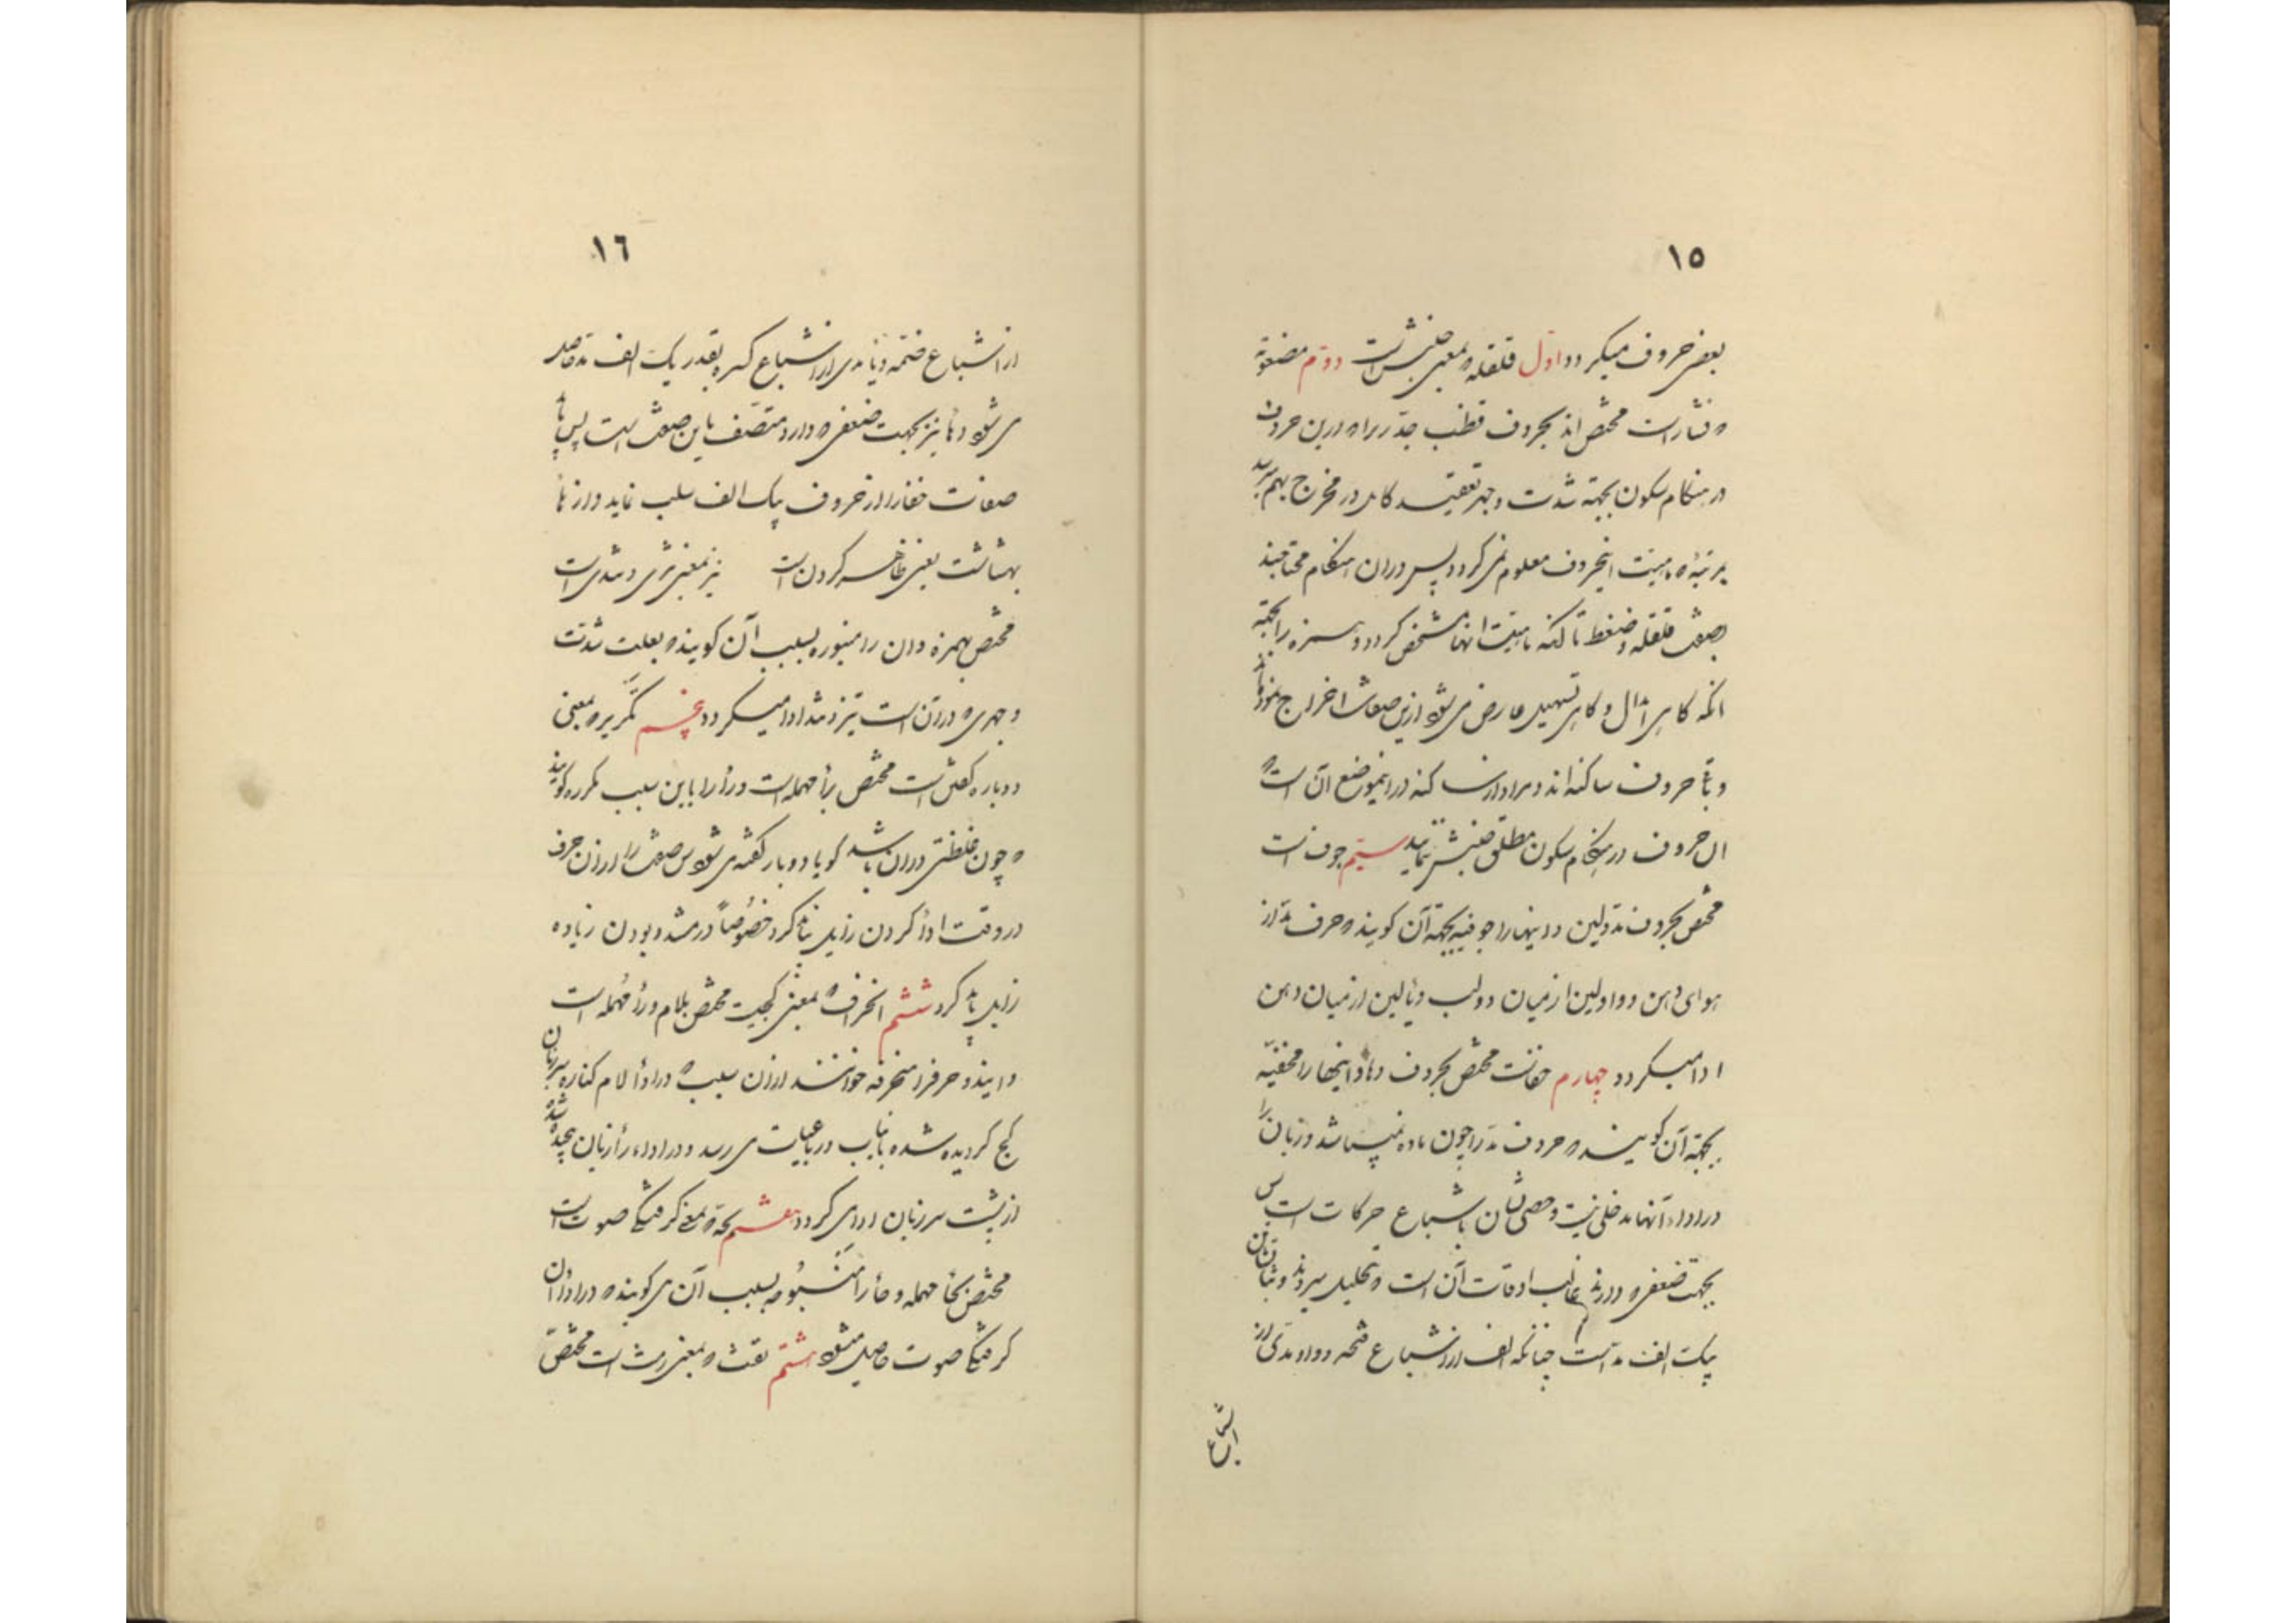 ١٥
بعض حروف میکردد اول قلقله بمعنی جنبش است دوم مضغوطة
که فشار است مختص اند بحروف قطب جد زیرا که درین حروف
در هنکام سکون بجهة شدت و جهر تقیید کامل در مخرج بهم میرسد
بمرتبۀ که ماهیت اینحروف معلوم نمی کردد پس در ان هنکام محتاجند
بصفت قلقله و ضغط تا آنکه ماهیت انها مشخص کردد و همزه را بجهة
آنکه کاهی ابدال و کاهی تسهیل عارض می شود ازین صفات اخراج نموده اند
و باقی حروف ساکنه اند و مراد از ساکنه در اینموضع آن است که
ان حروف در هنکام سکون مطلق جنبش ننمایند سیّم جوف است
مختص بحروف مد و لین و اینها را جوفیه بجهة آن کویند که حرف مد از
هوای دهن و واو لین از میان دو لب و یاء لین از میان دهن
ادا میکردد چهارم خفاست مختص بحروف مد و ها و اینها را مخفیّه
بجهة آن کویند که حروف مد را چون ماده نمیباشد و زبان را
در اداء آنها مدخلی نیست و حصولشان باشباع حرکات است پس
بجهت ضعفی که دارند غالب اوقات آن است که بتحلیل میروند و ثباتشان
یک الف مد است چنانکه الف از اشباع فتحه و واو مدی از
اشباع
١٦
از اشباع ضمه و یاء مدی از اشباع کسره بقدر یک الف مد حاصل
می شود و ها نیز بجهت ضعفی که دارد متصف باین صفت است پس باید
صفات خفا را از حروف یک الف سلب نماید و از ها
بهشاشت یعنی ظاهر کردن است نیز بمعنی تیزی و تندی است
مختص بهمزه و ان را منبوره بسبب آن کویند که بعلت شدت
و جهری که در آن است تیز و تند ادا میکردد پنجم تکریر که بمعنی
دوباره کفتن است مختص برأ مهمله است و را را باین سبب مکرره کویند
که چون غلظتی در ان باشد کویا دو بار کفته می شود پس این صفت را از ان حرف
در وقت ادا کردن زایل باید کرد خصوصاً در مشدد بودن زیاده
زایل باید کرد ششم انحراف که بمعنی کجیست مختص بلام و رأ مهمله است
و ایندو حرف را منحرفه خوانند از ان سبب که در ادأ لام کناره سر زبان
کج کردیده شده بانیاب و رباعیات می رسد و در اداء رأ زبان پیچیده شده
از پشت سر زبان ادا می کردد هفتم بحة که بمعنی کرفتکی صوت است
مختص بحأ مهمله و حأ را مبحوحه بسبب آن می کویند که در ادأ ان
کرفتکی صوت حاصل میشود هشتم نفث که بمعنی است مختص